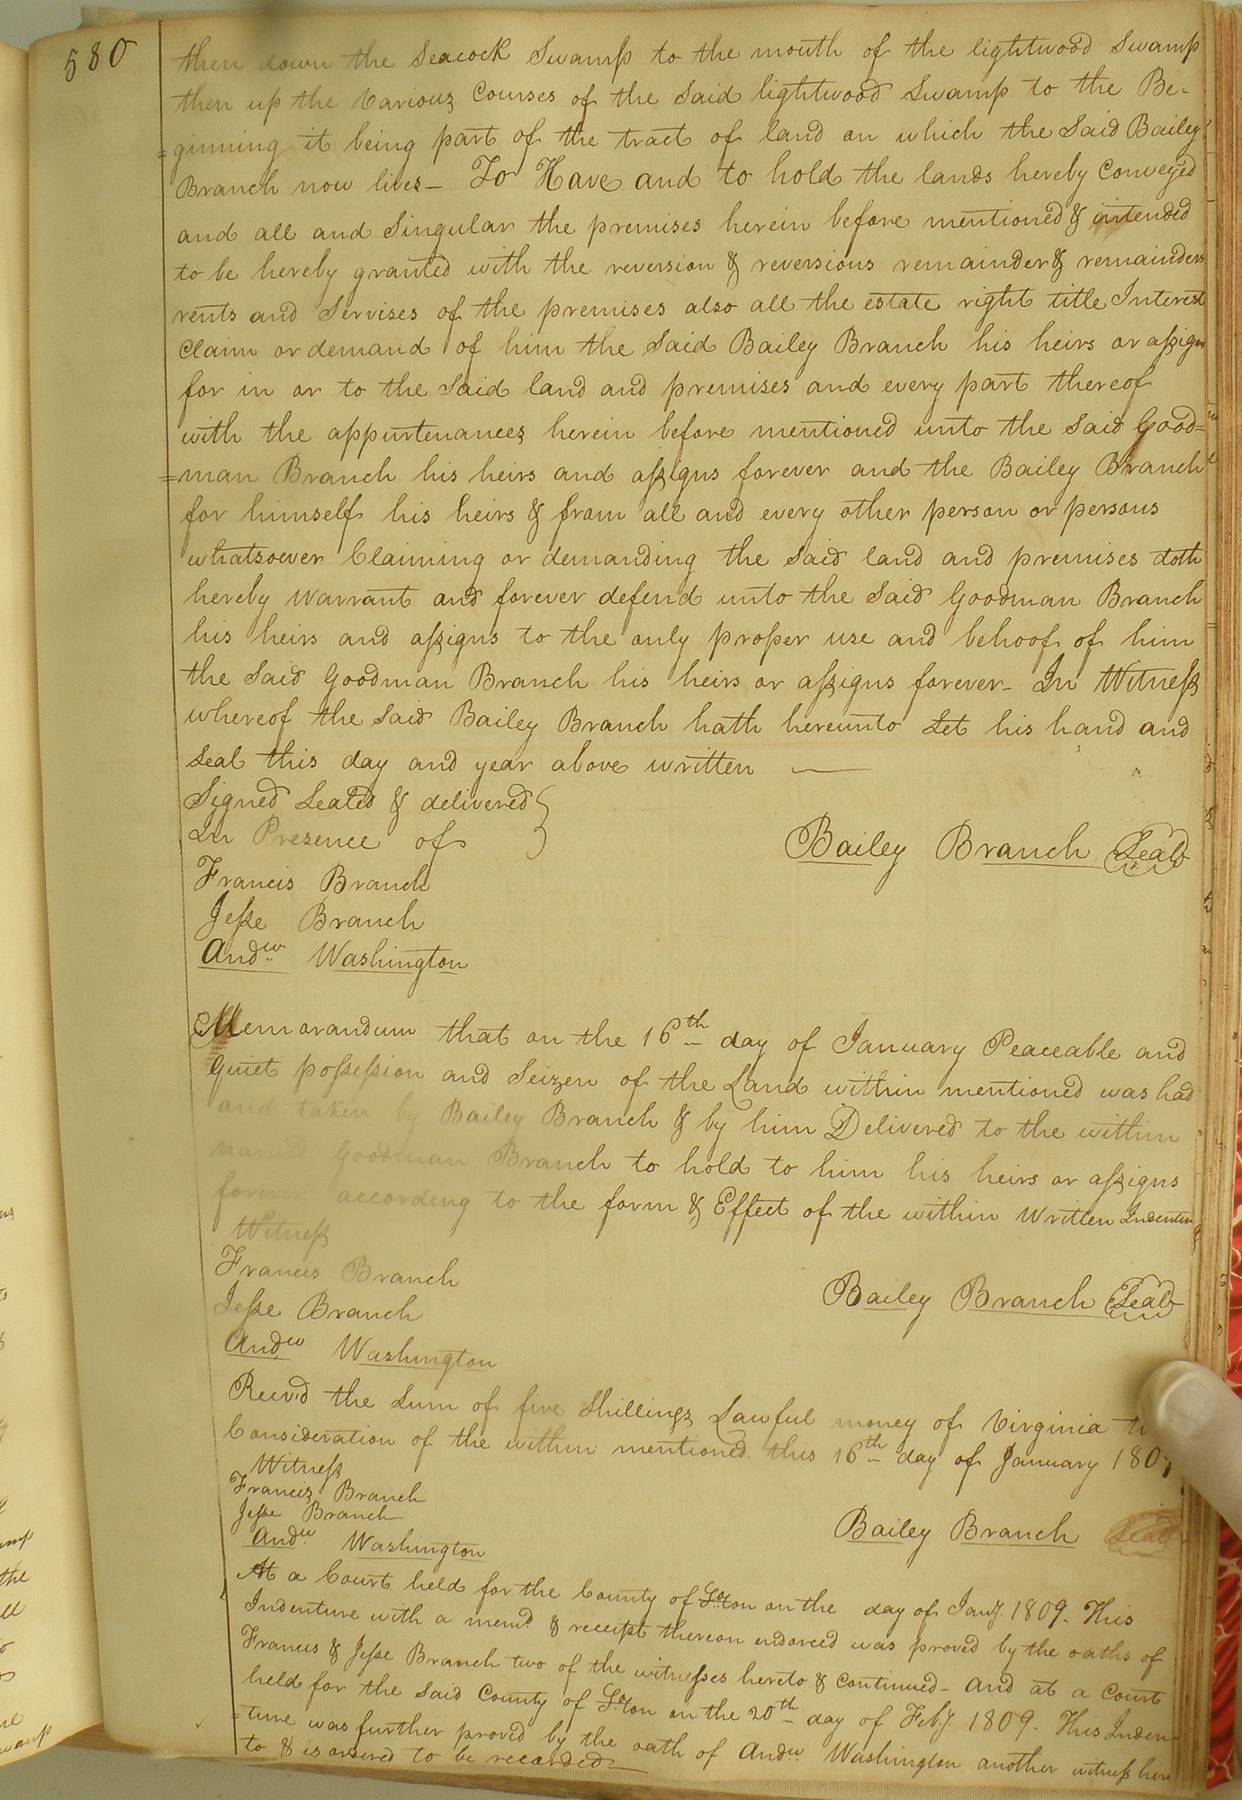 580
then down the Seacock Swamp to the mouth of the lightwood Swamp
then up the Various Courses of the Said lightwood Swamp to the Be-
=ginning it being part of the tract of land on which the Said Bailey
Branch now lives - To Have and to hold the lands hereby Conveyed
and all and Singular the premises herein before mentioned & intended
to be hereby granted with the reversion & reversions remainder & remainders
rents and Servises of the premises also all the estate right title Interest
Claim or demand of him the Said Bailey Branch his heirs or assigns
for in or to the Said land and premises and every part thereof
with the appurtenances herein before mentioned unto the Said Good=
=man Branch his heirs and assigns forever and the Bailey Branch
for himself his heirs & from all and every other person or persons
whatsoever Claiming or demanding the Said land and premises doth
hereby Warrant and forever defend unto the Said Goodman Branch
his heirs and assigns to the only proper use and behoof of him
the Said Goodman Branch his heirs or assigns forever - In Witness
whereof the Said Bailey Branch hath hereunto Set his hand and
Seal this day and year above written —
Signed Sealed & delivered }
In Presence of
Bailey Branch Seal
Francis Branch
Jesse Branch
Andw. Washington
Memorandum that on the 16th day of January Peaceable and
Quiet possession and Seizen of the Land within mentioned was had
and taken by Bailey Branch & by him Delivered to the within
named Goodman Branch to hold to him his heirs or assigns
forever according to the form & Effect of the within Written Indenture
Witness
Francis Branch
Bailey Branch Seal
Jesse Branch
Andw Washington
Recev'd the Sum of five Shillings Lawful money of Virginia
Consideration of the within mentioned this 16th day of January 180
Witness
Francis Branch
Jesse Branch
Bailey Branch Seal
Andw. Washington
At a Court held for the County of So.ton on the day of Jany. 1809. This
Indenture with a memd. & receipt thereon endorced was proved by the oaths of
Francis & Jesse Branch two of the witnesses hereto & Continued - And at a Court
held for the Said County of So.ton on the 20th day of Feby. 1809. This Inden-
=ture was further proved by the oath of Andw. Washington another witness here
to & is ordered to be recorded —